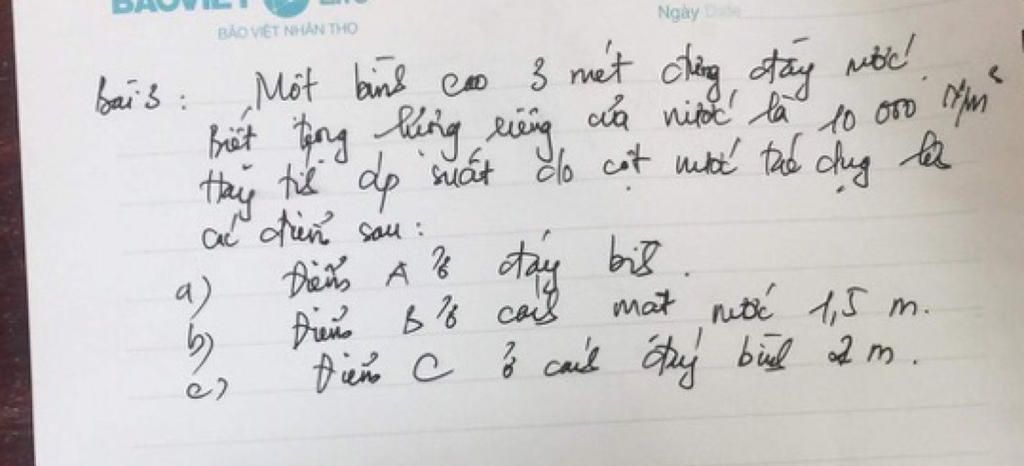 BẢOVIỆT LIFE
BẢO VIỆT NHÂN THỌ
Ngày Date
Bài 3 : Một bình cao 3 mét đựng đầy nước.
Biết trọng lượng riêng của nước là 10 000 N/m³
Hãy tính áp suất do cột nước tác dụng lên
các điểm sau :
a) Điểm A ở đáy bình.
b) Điểm B ở cách mặt nước 1,5 m.
c) Điểm C ở cách đáy bình 2 m.